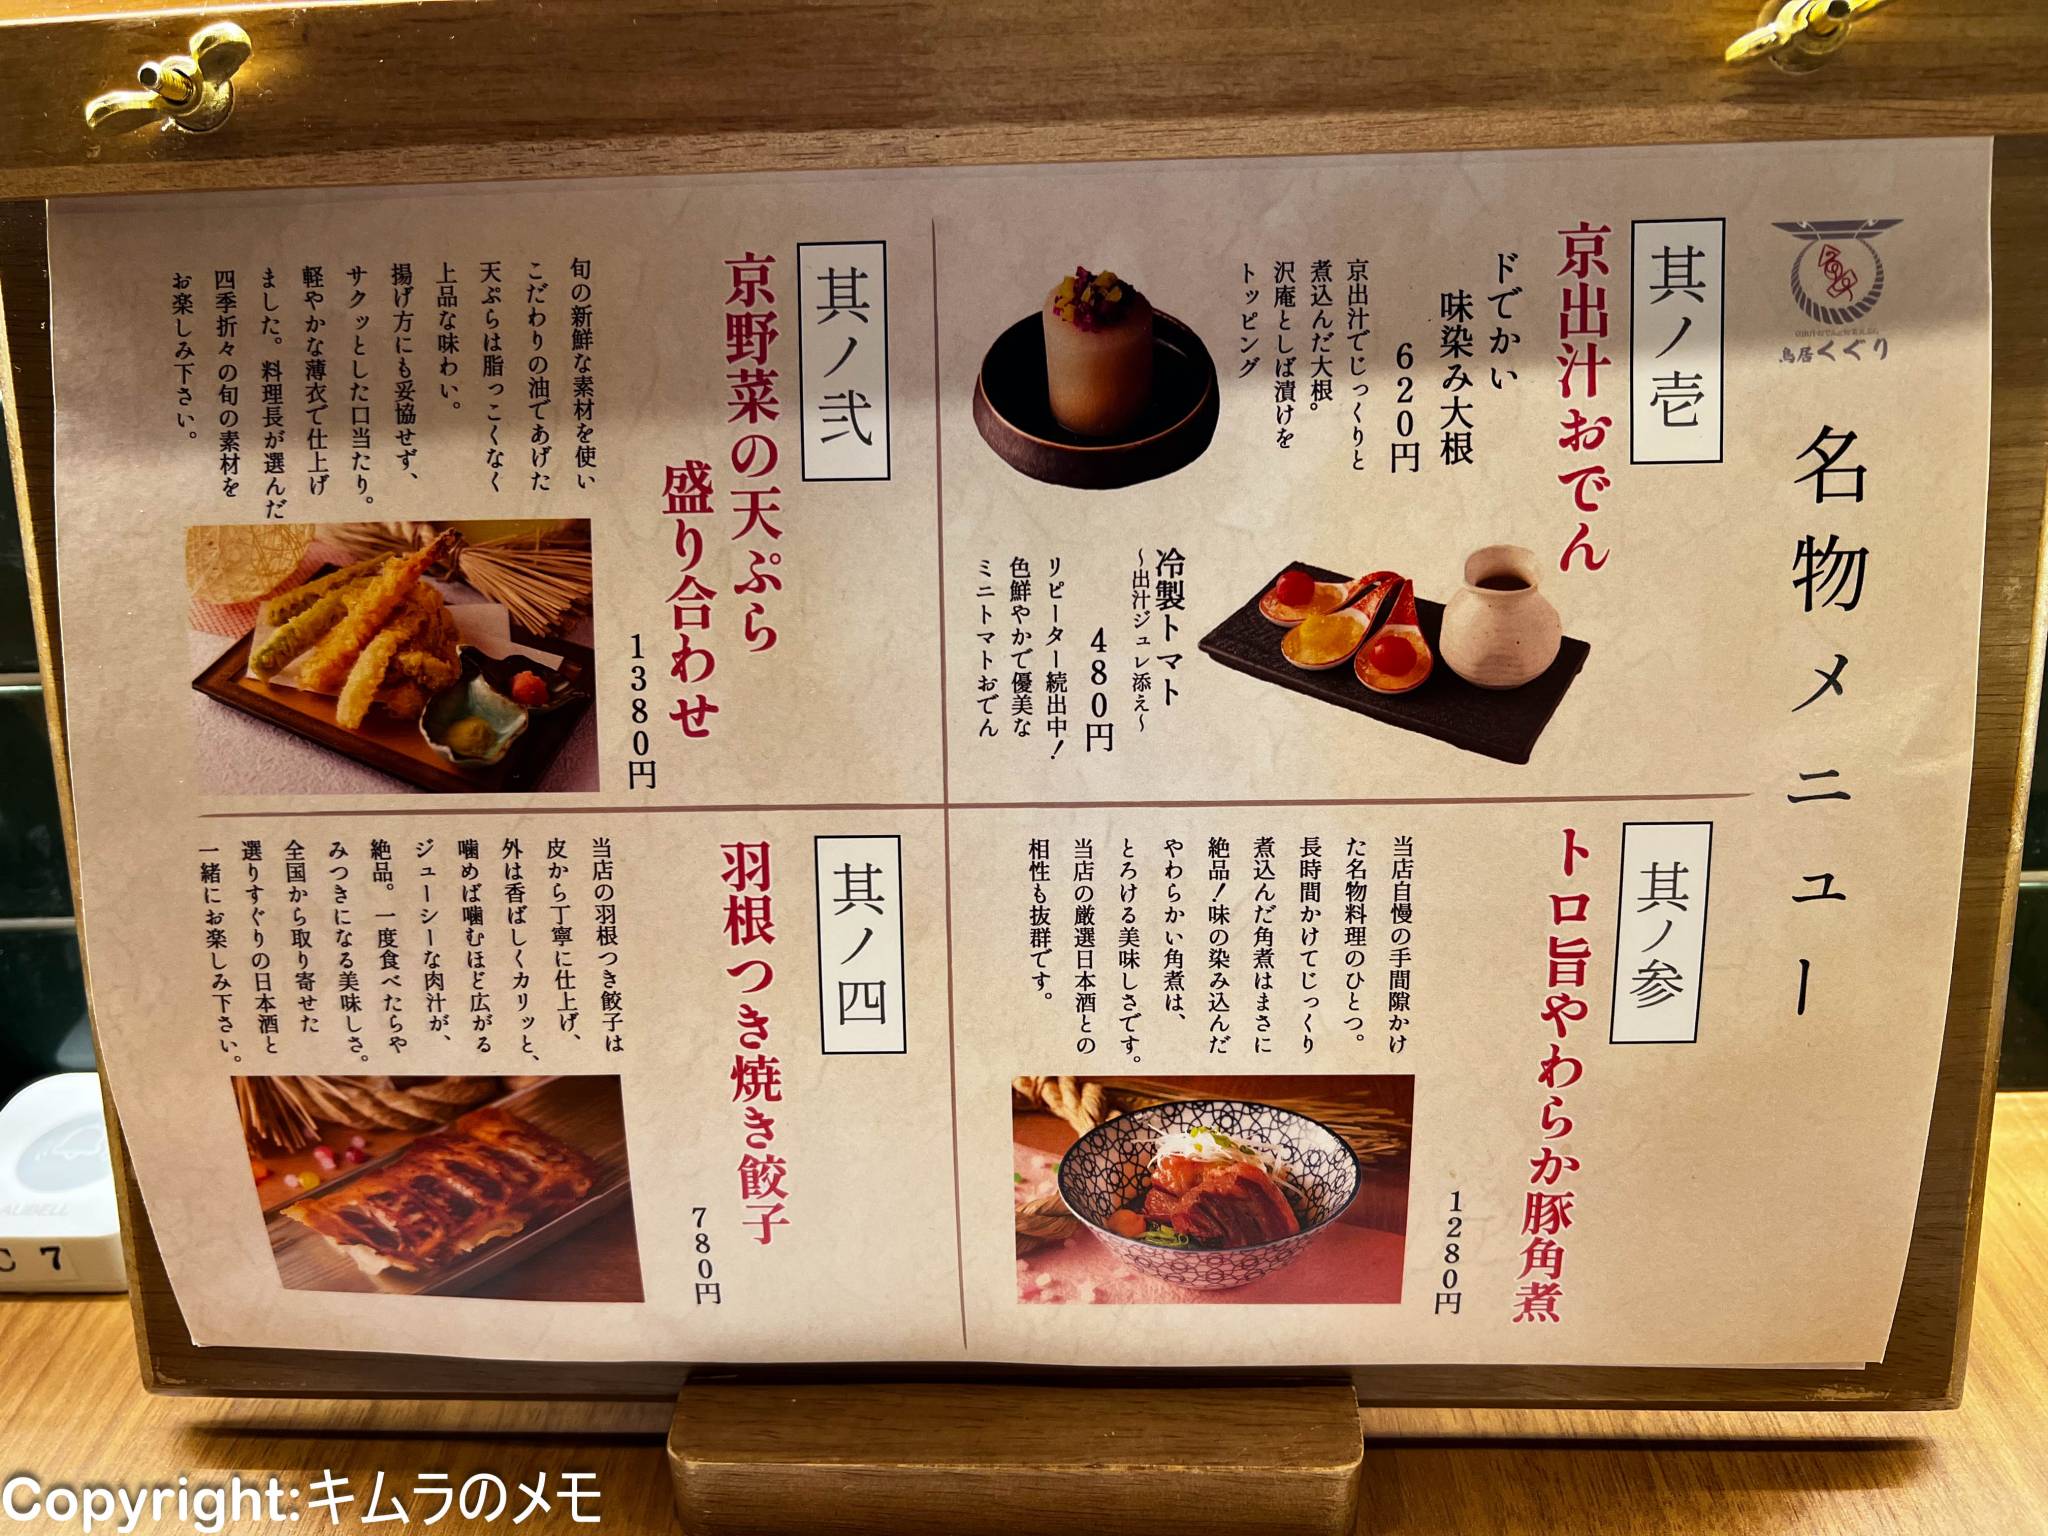 名物メニュー
鳥居くぐり
其ノ壱
京出汁おでん
ドでかい
味染み大根
620円
京出汁でじっくりと
煮込んだ大根。
沢庵としば漬けを
トッピング
冷製トマト
〜出汁ジュレ添え〜
480円
リピーター続出中!
色鮮やかで優美な
ミニトマトおでん
其ノ弐
京野菜の天ぷら
盛り合わせ
1380円
旬の新鮮な素材を使い
こだわりの油であげた
天ぷらは脂っこくなく
上品な味わい。
揚げ方にも妥協せず、
サクッとした口当たり。
軽やかな薄衣で仕上げ
ました。料理長が選んだ
四季折々の旬の素材を
お楽しみ下さい。
其ノ参
トロ旨やわらか豚角煮
1280円
当店自慢の手間隙かけ
た名物料理のひとつ。
長時間かけてじっくり
煮込んだ角煮はまさに
絶品!味の染み込んだ
やわらかい角煮は、
とろける美味しさです。
当店の厳選日本酒との
相性も抜群です。
其ノ四
羽根つき焼き餃子
780円
当店の羽根つき餃子は
皮から丁寧に仕上げ、
外は香ばしくカリッと、
噛めば噛むほど広がる
ジューシーな肉汁が、
絶品。一度食べたらや
みつきになる美味しさ。
全国から取り寄せた
選りすぐりの日本酒と
一緒にお楽しみ下さい。
C 7
Copyright:キムラのメモ